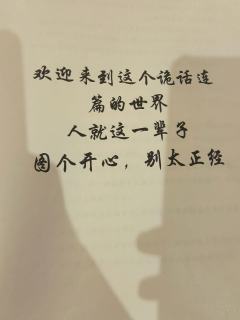 欢迎来到这个诡话连
篇的世界
人就这一辈子
图个开心，别太正经